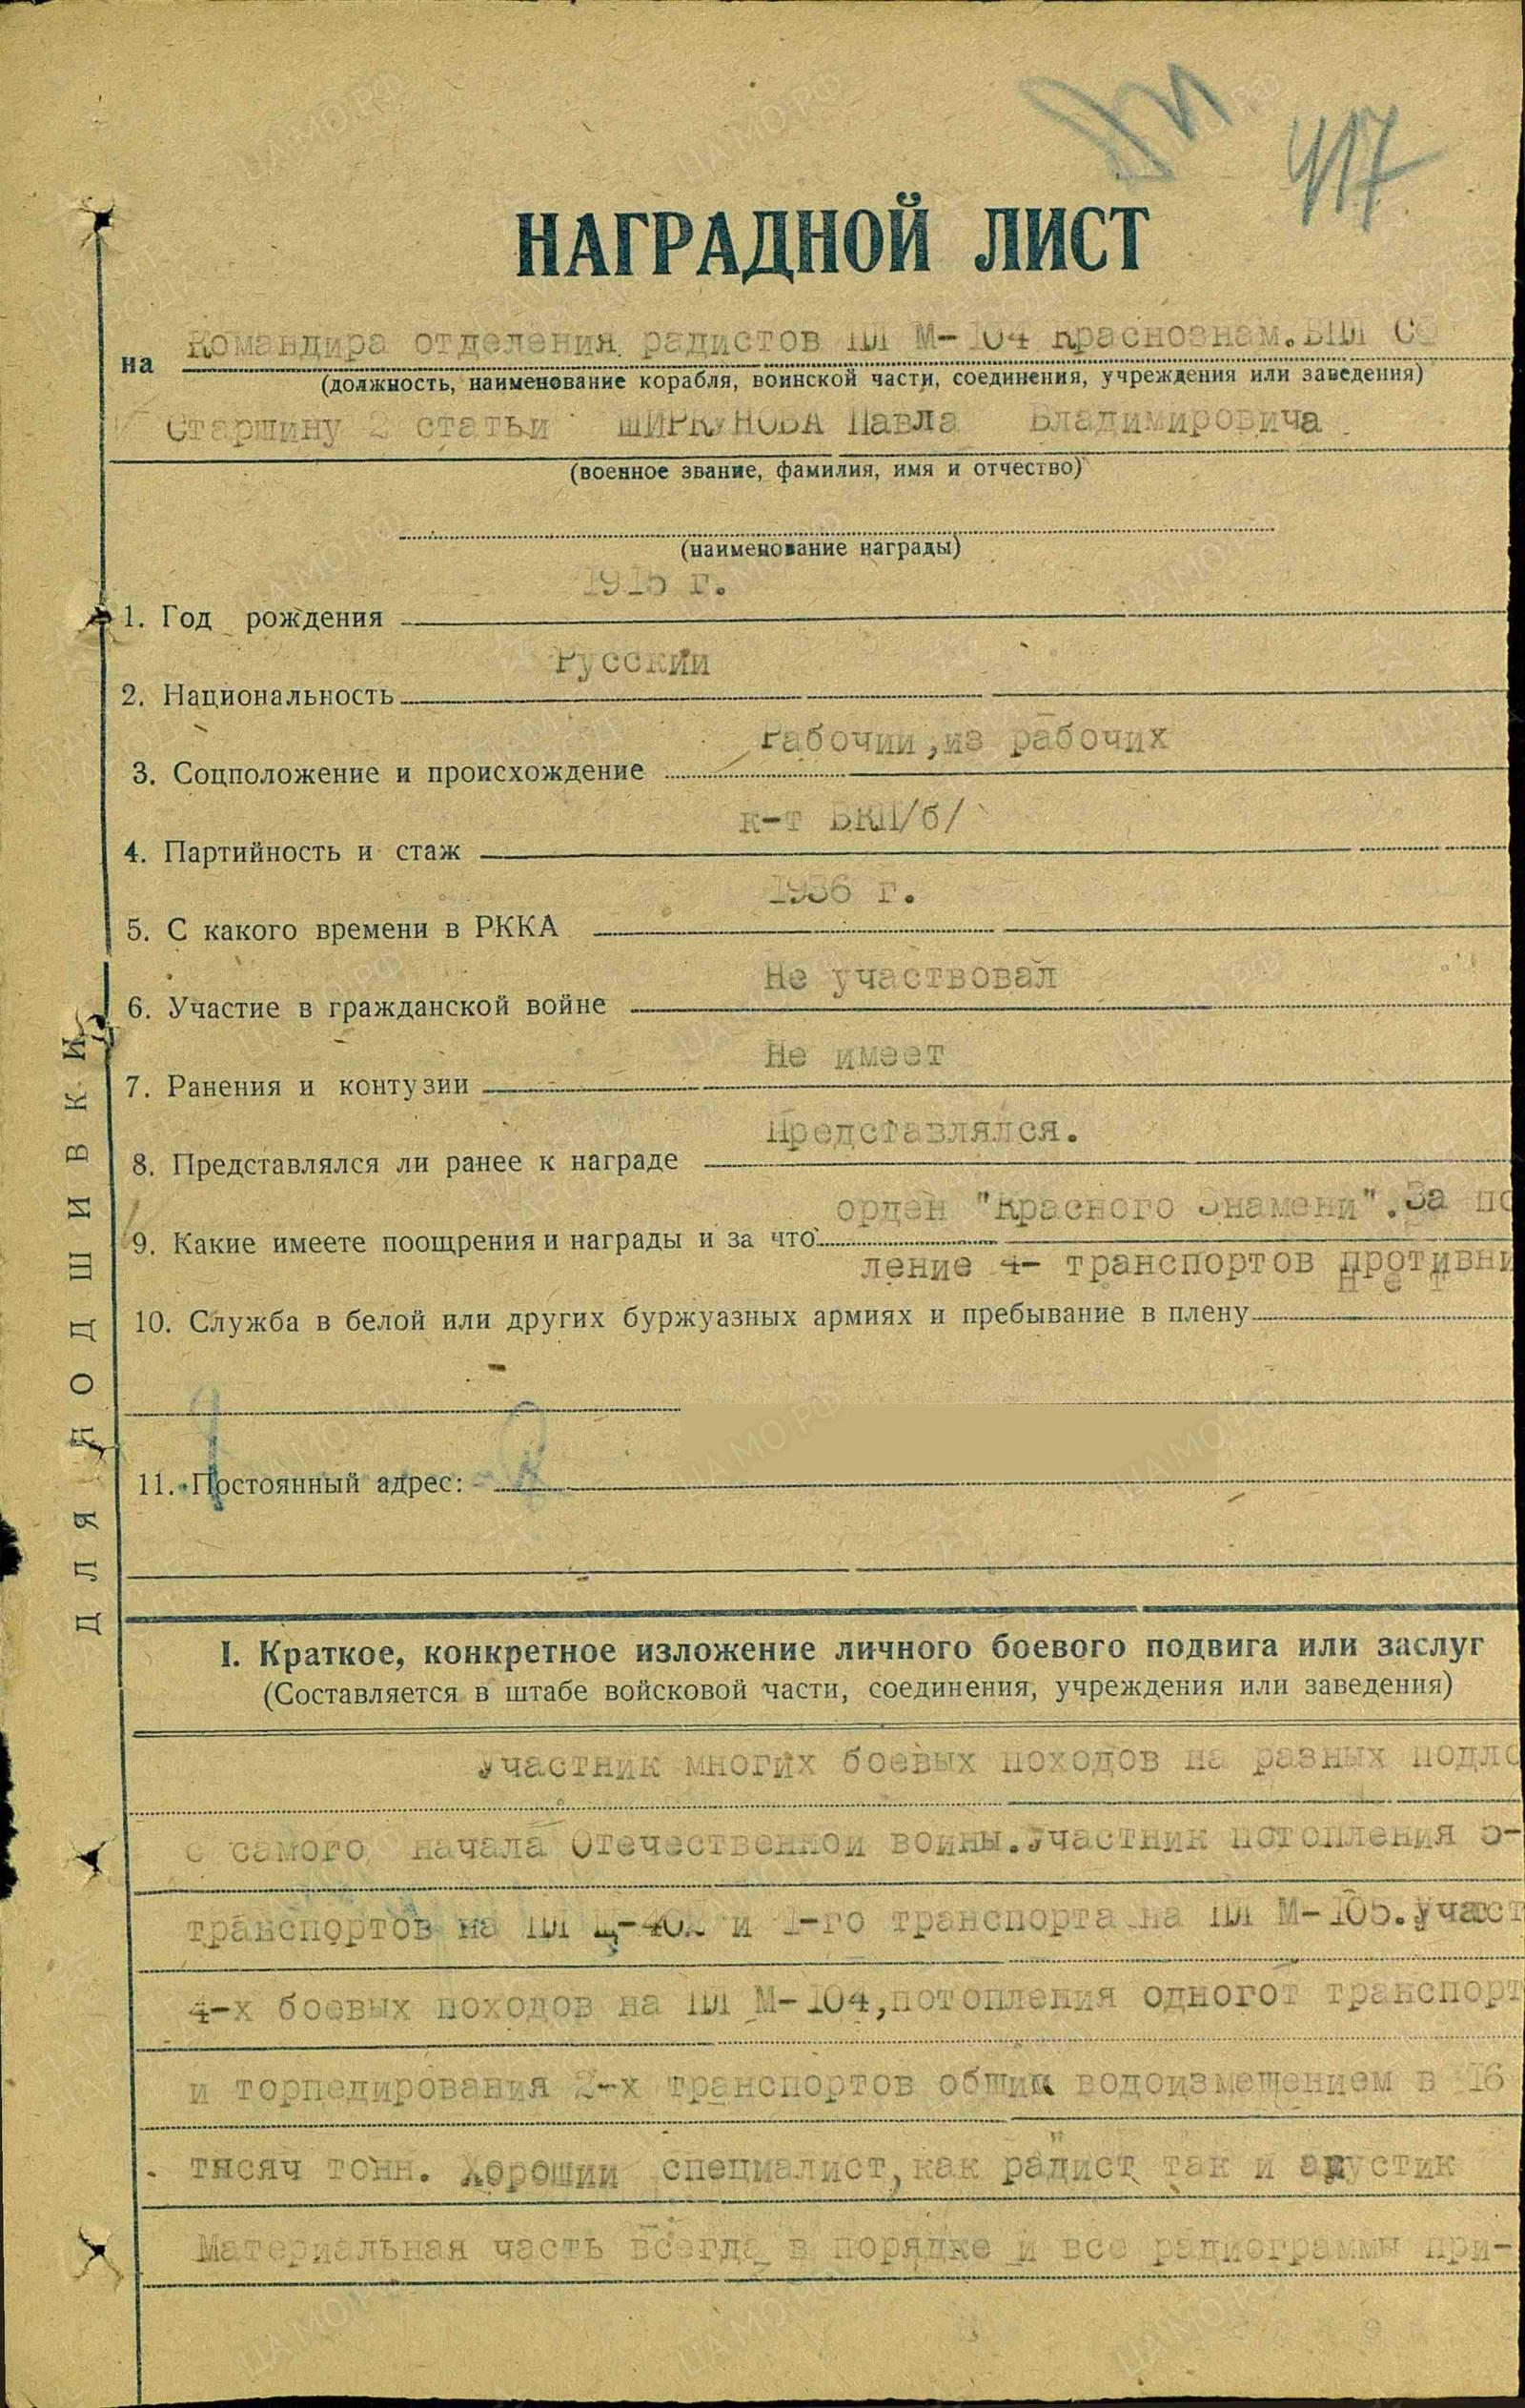 417
НАГРАДНОЙ ЛИСТ
на Командира отделения радистов ПЛ М-104 Краснознам.БПЛ СФ
(должность, наименование корабля, воинской части, соединения, учреждения или заведения)
Старшину 2 статьи ШИРКУНОВА Павла Владимировича
(военное звание, фамилия, имя и отчество)
(наименование награды)
1915 г.
1. Год рождения
Русский
2. Национальность
Рабочий,из рабочих
3. Соцположение и происхождение
к-т ВКП/б/
4. Партийность и стаж
1936 г.
5. С какого времени в РККА
Не участвовал
6. Участие в гражданской войне
Не имеет
7. Ранения и контузии
Представлялся.
8. Представлялся ли ранее к награде
орден "Красного Знамени".За по
9. Какие имеете поощрения и награды и за что
ление 4- транспортов противни
нет
10. Служба в белой или других буржуазных армиях и пребывание в плену
11. Постоянный адрес:
ДЛЯ ПОДШИВКИ
I. Краткое, конкретное изложение личного боевого подвига или заслуг
(Составляется в штабе войсковой части, соединения, учреждения или заведения)
Участник многих боевых походов на разных подло
с самого начала Отечественной войны.Участник потопления
транспортов на ПЛ Щ-402 и 1-го транспорта на ПЛ М-105.Участ
4-х боевых походов на ПЛ М-104,потопления одногот транспорт
и торпедирования 2-х транспортов общим водоизмещением в 16
тысяч тонн. Хороший специалист,как радист так и акустик
Материальная часть всегда в порядке и все радиограммы при-